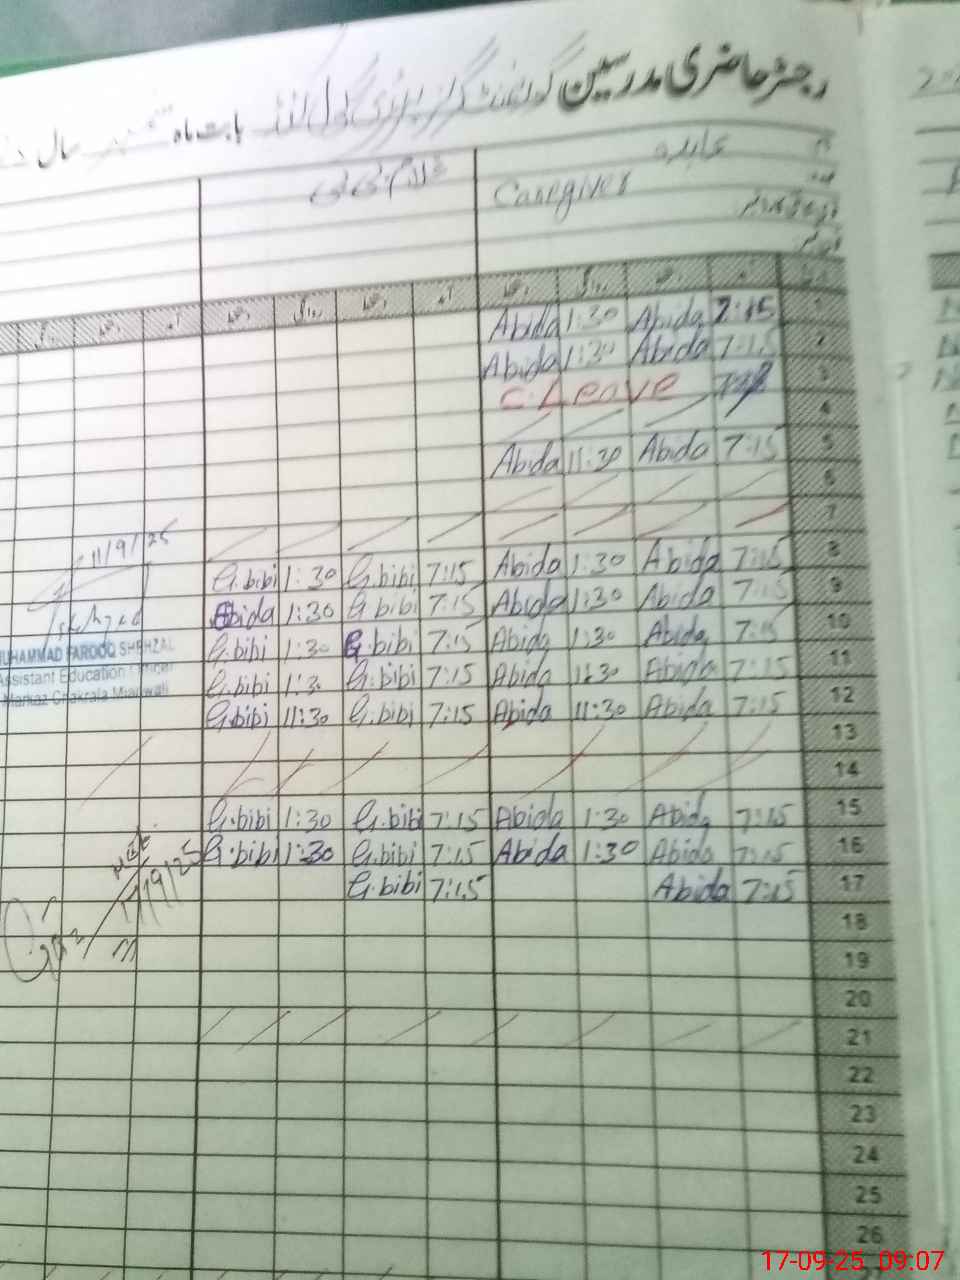 رجسٹر حاضری مدرسین گورنمنٹ گرلز پرائمری بابت ماہ ستمبر سال
عابدہ
غلام بی بی Caregiver
Abida 1:30 Abida 7:15 1
Abida 1:30 Abida 7:15 2
C. Leave 3
4
Abida 11:30 Abida 7:15 5
6
7
11/9/25
G.bibi 1:30 G.bibi 7:15 Abida 1:30 Abida 7:15 8
Abida 1:30 G bibi 7:15 Abida 1:30 Abida 7:15 9
G.bibi 1:30 G.bibi 7:15 Abida 1:30 Abida 7:15 10
MUHAMMAD FAROOQ SHEHZAD
Assistant Education Officer
Markaz Chakrala Mianwali
G.bibi 1:3 G.bibi 7:15 Abida 11:30 Abida 7:15 11
G.bibi 11:30 G.bibi 7:15 Abida 11:30 Abida 7:15 12
13
14
G.bibi 1:30 G.bibi 7:15 Abida 1:30 Abida 7:15 15
G.bibi 1:30 G.bibi 7:15 Abida 1:30 Abida 7:15 16
G.bibi 7:15 Abida 7:15 17
17/9/25
18
19
20
21
22
23
24
25
26
17-09-25 09:07